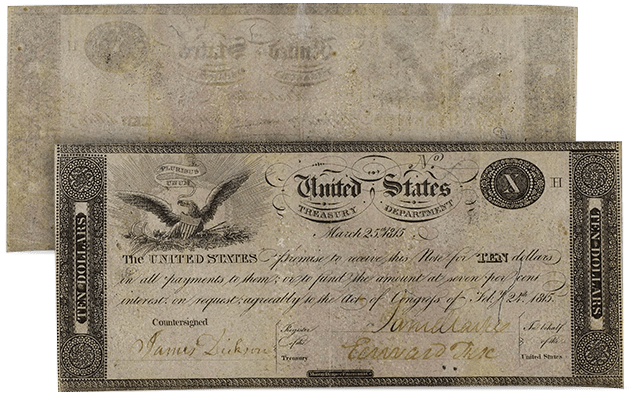 PLURIBUS
UNUM
No
United States
TREASURY DEPARTMENT
March 25, 1815
X
H
TEN DOLLARS
TEN-DOLLARS
The UNITED STATES promise to receive this Note for TEN dollars
in all payments to them; or to fund the amount at seven per cent
interest, on request, agreeably to the Act of Congress of Feb.y 24th 1815.
Countersigned
James Dickson
Register
of the
Treasury
Edward Fox
In behalf
of the
United States